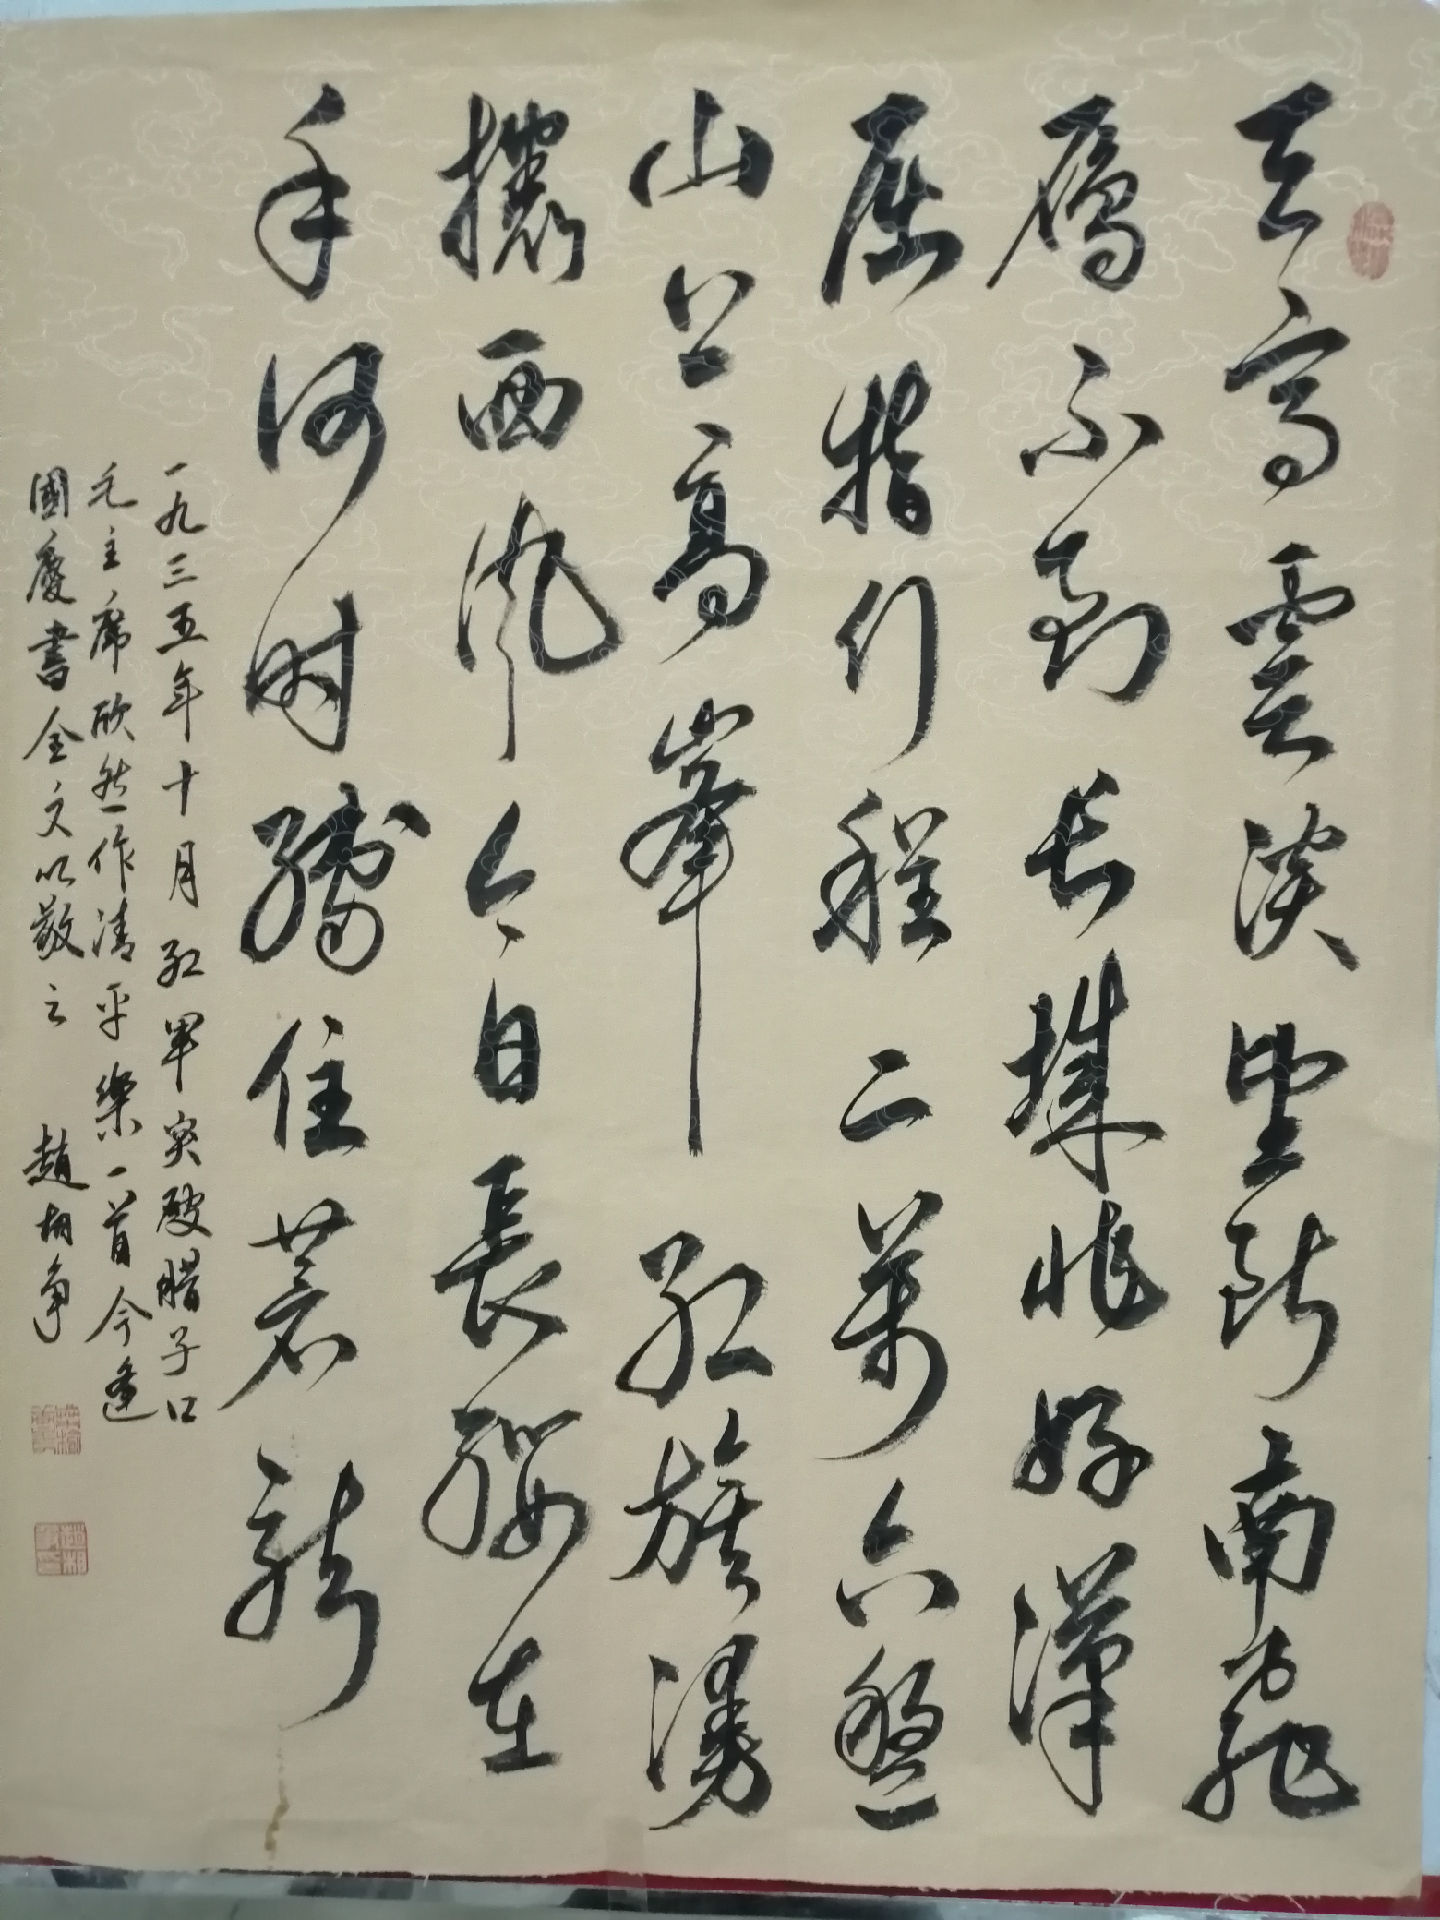 天高雲淡望断南飛
鴈不到长城非好漢
屈指行程二萬六盤
山上高峯红旗漫
攘西风今日長纓在
手何时缚住蒼龍
一九三五年十月红軍突破腊子口
毛主席欣然作清平樂一首今逢
國慶書全文以敬之 趙相争